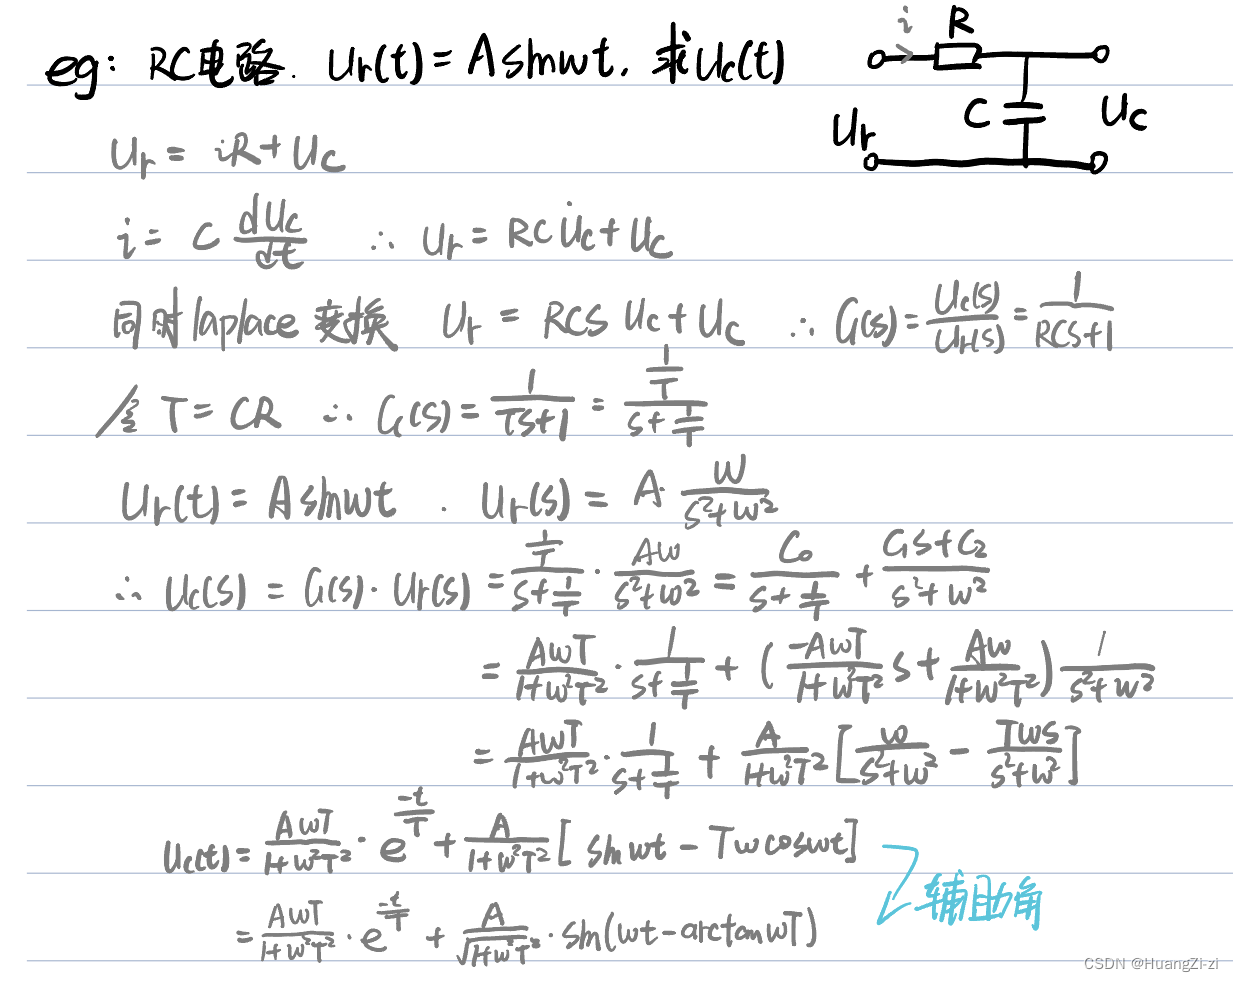 eg: RC电路. Ur(t) = A sinwt, 求Uc(t)
i R
C Uc
Ur
Ur = iR + Uc
i = C dUc/dt ∴ Ur = RC U̇c + Uc
同时laplace变换 Ur = RCS Uc + Uc ∴ G(s) = Uc(s)/Ur(s) = 1/(RCS+1)
令 T = CR ∴ G(s) = 1/(TS+1) = (1/T)/(S + 1/T)
Ur(t) = A sinwt . Ur(s) = A · w/(S²+w²)
∴ Uc(s) = G(s) · Ur(s) = (1/T)/(S + 1/T) · Aw/(S²+w²) = C₀/(S + 1/T) + (C₁S + C₂)/(S²+w²)
= AwT/(1+w²T²) · 1/(S + 1/T) + (-AwT/(1+w²T²) S + Aw/(1+w²T²)) 1/(S²+w²)
= AwT/(1+w²T²) · 1/(S + 1/T) + A/(1+w²T²) [w/(S²+w²) - TwS/(S²+w²)]
Uc(t) = AwT/(1+w²T²) · e^(-t/T) + A/(1+w²T²) [sinwt - Tw coswt]
辅助角
= AwT/(1+w²T²) · e^(-t/T) + A/√(1+w²T²) · sin(wt - arctan wT)
CSDN @HuangZi-zi